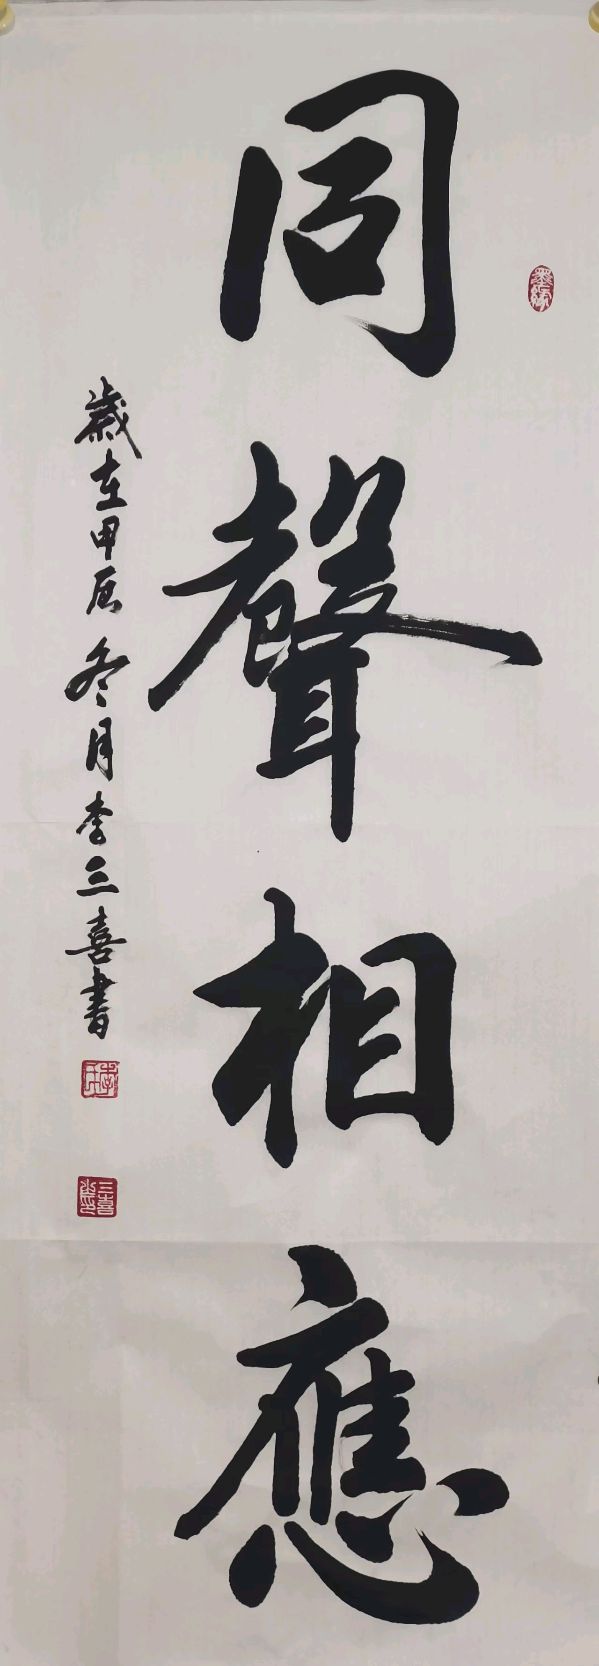 同聲相應
歲在甲辰冬月李三喜書
三喜